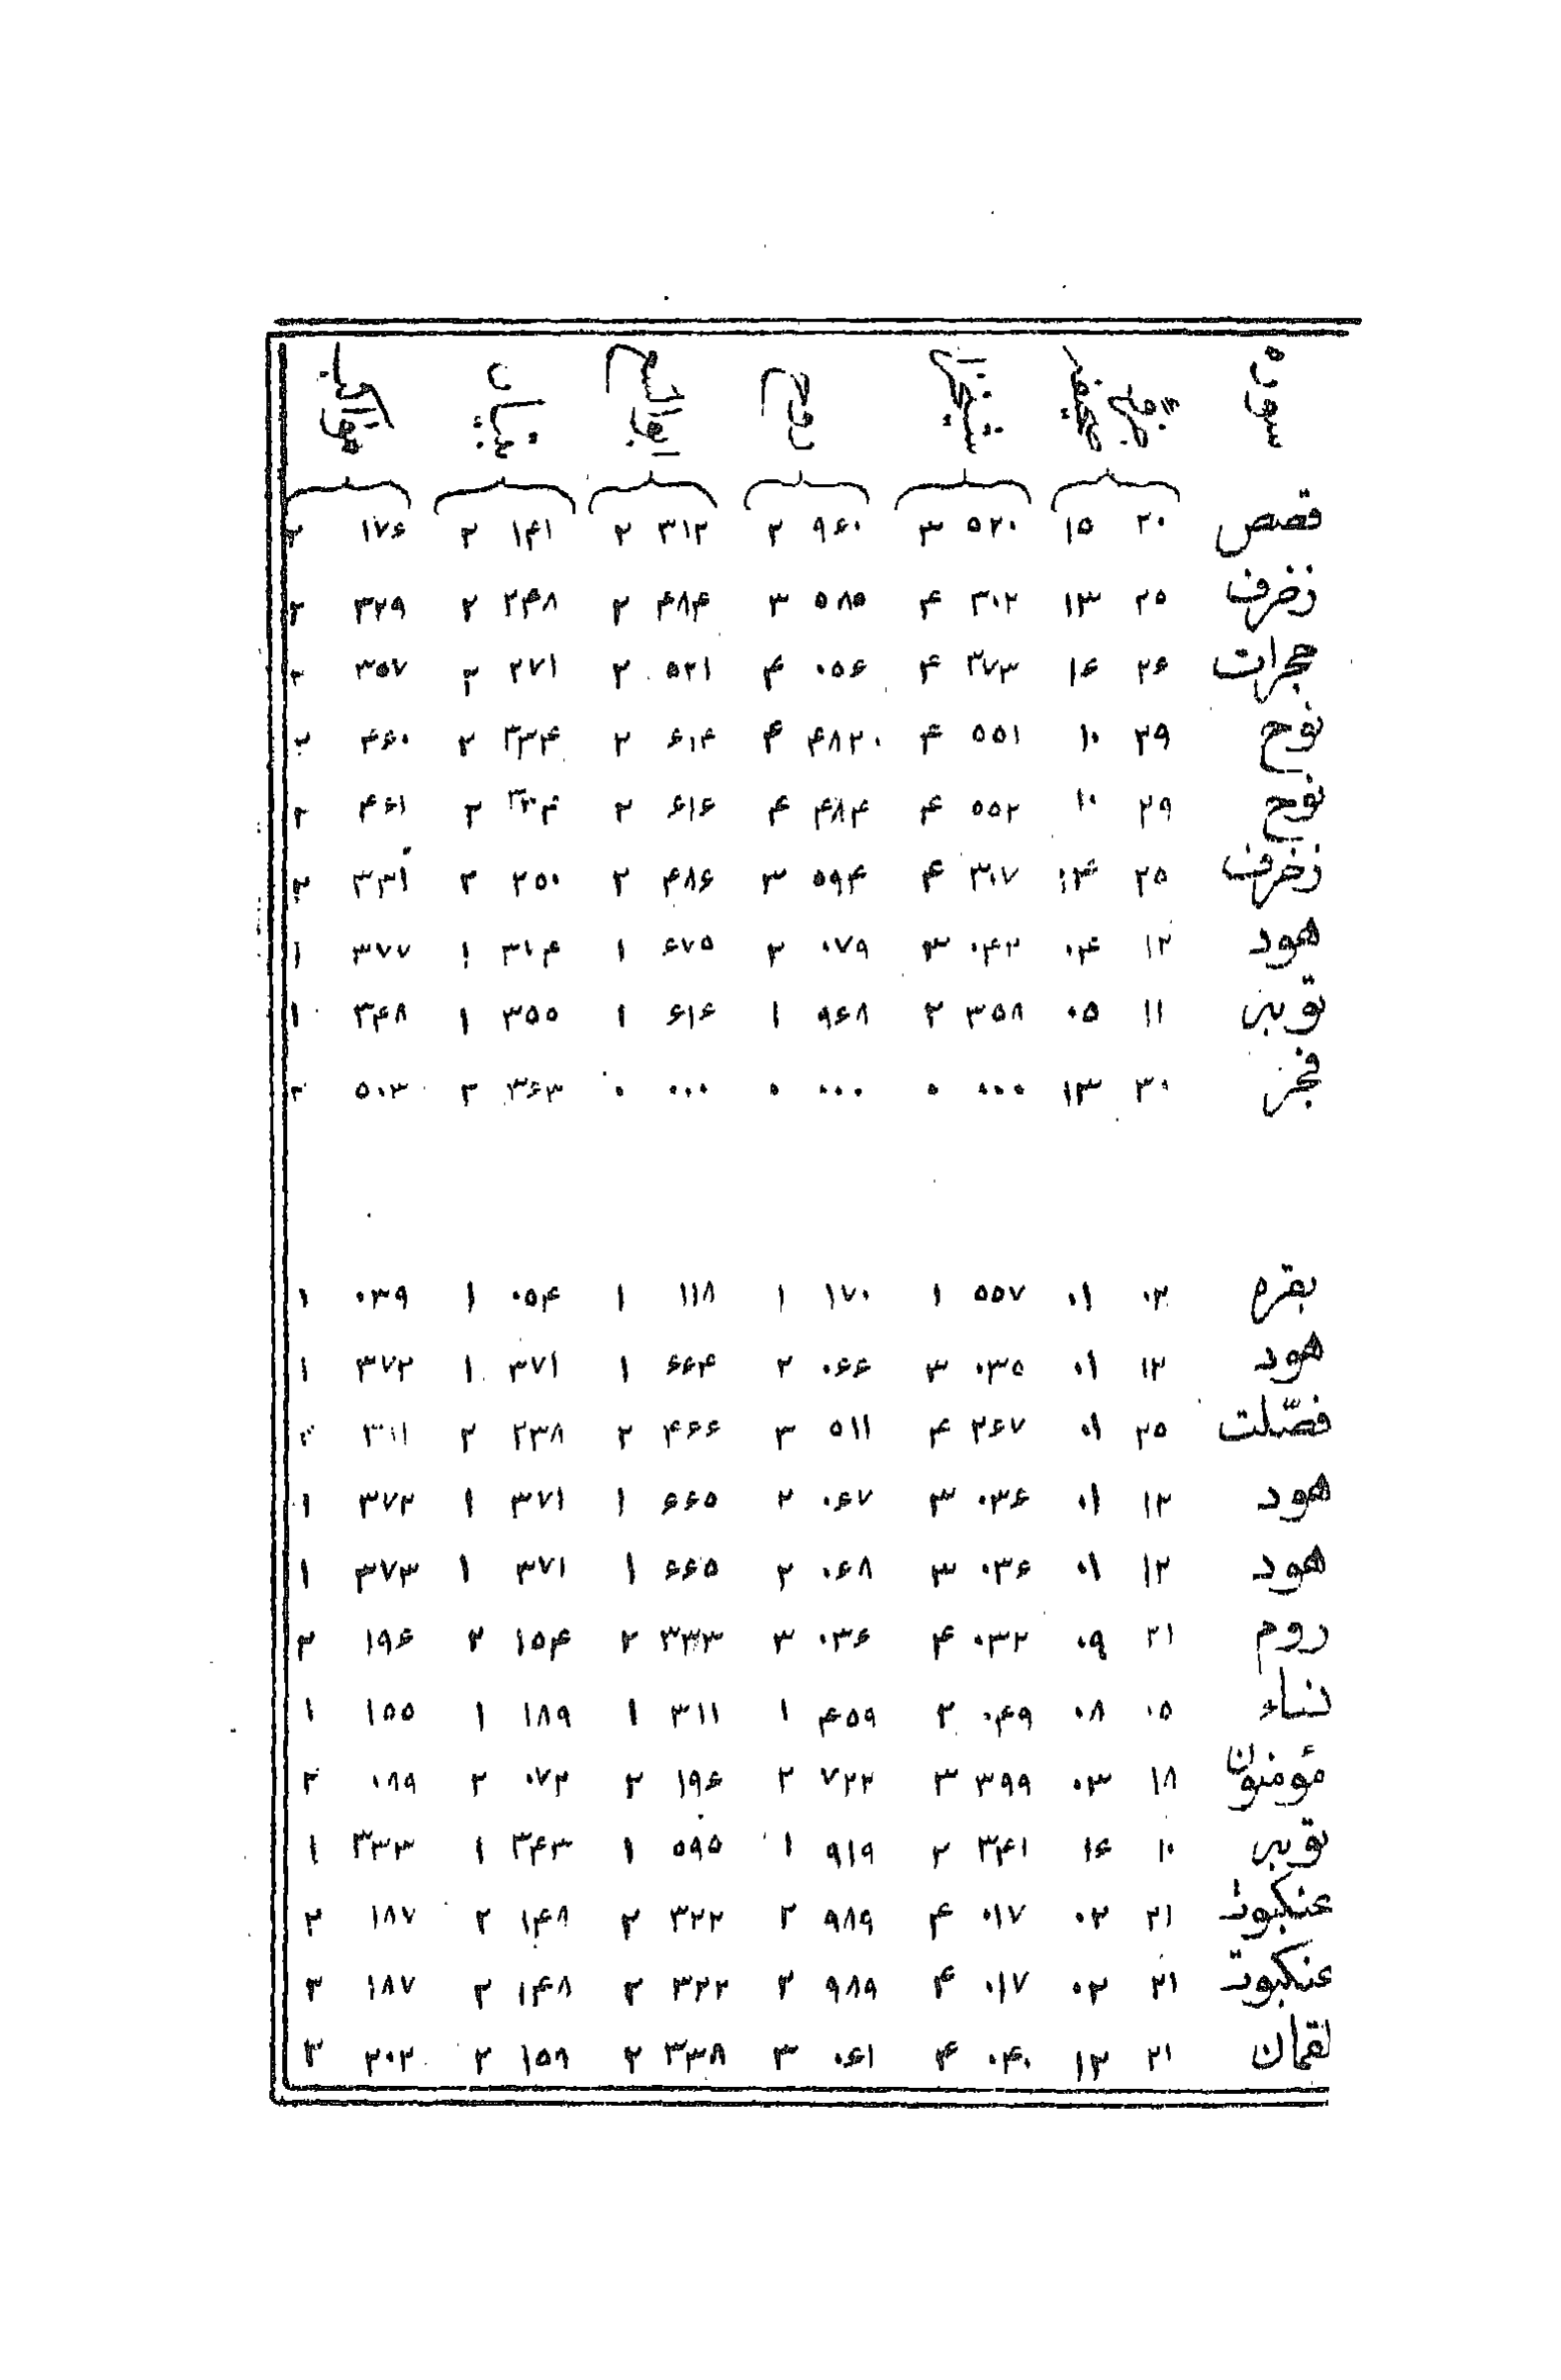 سوره
قصص ۲۰ ۱۵ ۵۲۰ ۳ ۹۶۰ ۲ ۳۱۲ ۲ ۱۴۱ ۲ ۱۷۶ ۲
زخرف ۲۵ ۱۳ ۳۰۲ ۴ ۵۸۵ ۳ ۴۸۴ ۲ ۲۴۸ ۲ ۳۲۹ ۲
حجرات ۲۶ ۱۶ ۳۷۳ ۴ ۰۵۶ ۴ ۵۲۱ ۲ ۲۷۱ ۲ ۳۵۷ ۲
نوح ۲۹ ۱۰ ۵۵۱ ۴ ۴۸۲۰ ۴ ۶۱۴ ۲ ۳۳۴ ۲ ۴۶۰ ۲
نوح ۲۹ ۱۰ ۵۵۲ ۴ ۴۸۴ ۴ ۶۱۶ ۲ ۳۳۴ ۲ ۴۶۱ ۲
زخرف ۲۵ ۱۴ ۳۰۷ ۴ ۵۹۴ ۳ ۴۸۶ ۲ ۲۵۰ ۲ ۳۳۱ ۲
هود ۱۲ ۰۴ ۰۴۲ ۳ ۰۷۹ ۲ ۶۷۵ ۱ ۳۱۴ ۱ ۳۷۷ ۱
توبه ۱۱ ۰۵ ۳۵۸ ۲ ۹۶۸ ۱ ۶۱۶ ۱ ۳۵۵ ۱ ۳۴۸ ۱
فجر ۳۰ ۱۳ ۰۰۰ ۰ ۰۰۰ ۰ ۰۰۰ ۰ ۳۶۳ ۲ ۵۰۳ ۲
بقره ۰۲ ۰۱ ۵۵۷ ۱ ۱۷۰ ۱ ۱۱۸ ۱ ۰۵۴ ۱ ۰۳۹ ۱
هود ۱۲ ۰۱ ۰۳۵ ۳ ۰۶۶ ۲ ۶۶۴ ۱ ۳۷۱ ۱ ۳۷۲ ۱
فصّلت ۲۵ ۰۱ ۲۶۷ ۴ ۵۱۱ ۳ ۴۶۶ ۲ ۲۳۸ ۲ ۳۱۱ ۲
هود ۱۲ ۰۱ ۰۳۶ ۳ ۰۶۷ ۲ ۶۶۵ ۱ ۳۷۱ ۱ ۳۷۲ ۱
هود ۱۲ ۰۱ ۰۳۶ ۳ ۰۶۸ ۲ ۶۶۵ ۱ ۳۷۱ ۱ ۳۷۳ ۱
روم ۲۱ ۰۹ ۰۳۲ ۴ ۰۳۶ ۳ ۳۳۳ ۲ ۱۵۴ ۲ ۱۹۶ ۲
نساء ۰۵ ۰۸ ۰۴۹ ۲ ۴۵۹ ۱ ۳۱۱ ۱ ۱۸۹ ۱ ۱۵۵ ۱
مؤمنون ۱۸ ۰۳ ۳۹۹ ۳ ۷۲۲ ۲ ۱۹۶ ۲ ۰۷۲ ۲ ۰۸۹ ۲
توبه ۱۰ ۱۶ ۳۴۱ ۲ ۹۱۹ ۱ ۵۹۵ ۱ ۳۴۳ ۱ ۳۳۳ ۱
عنکبوت ۲۱ ۰۲ ۰۱۷ ۴ ۹۸۹ ۲ ۳۲۲ ۲ ۱۴۸ ۲ ۱۸۷ ۲
عنکبوت ۲۱ ۰۲ ۰۱۷ ۴ ۹۸۹ ۲ ۳۲۲ ۲ ۱۴۸ ۲ ۱۸۷ ۲
لقمان ۲۱ ۱۲ ۰۴۰ ۴ ۰۶۱ ۳ ۳۳۸ ۲ ۱۵۹ ۲ ۲۰۲ ۲